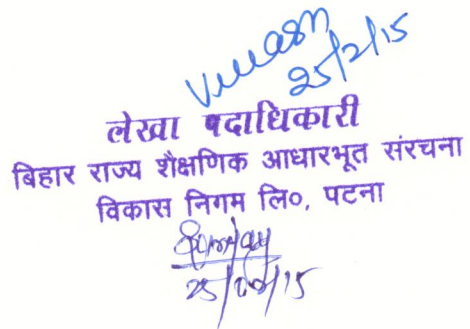 25/2/15
लेखा पदाधिकारी
बिहार राज्य शैक्षणिक आधारभूत संरचना
विकास निगम लि०, पटना
25/02/15